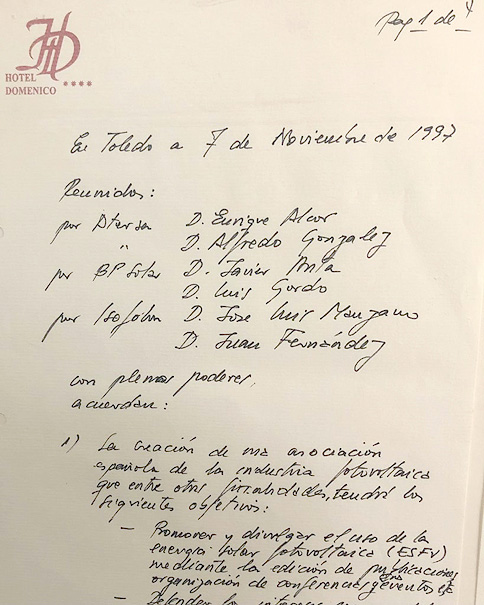 Pag 1 de 4
HD
HOTEL
DOMENICO ****
En Toledo a 7 de Noviembre de 1997
Reunidos:
por Atersa D. Enrique Alcor
" D. Alfredo Gonzalez
por BP Solar D. Javier Anta
D. Luis Gordo
por Isofoton D. Jose Luis Manzano
D. Juan Fernández
con plenos poderes,
acuerdan:
1) La creación de una asociación
española de la industria fotovoltaica
que entre otras finalidades, tendrá los
siguientes objetivos:
- Promover y divulgar el uso de la
energia solar fotovoltaica (ESFV)
mediante la edición de publicaciones,
organización de conferencias y eventos
- Defender los